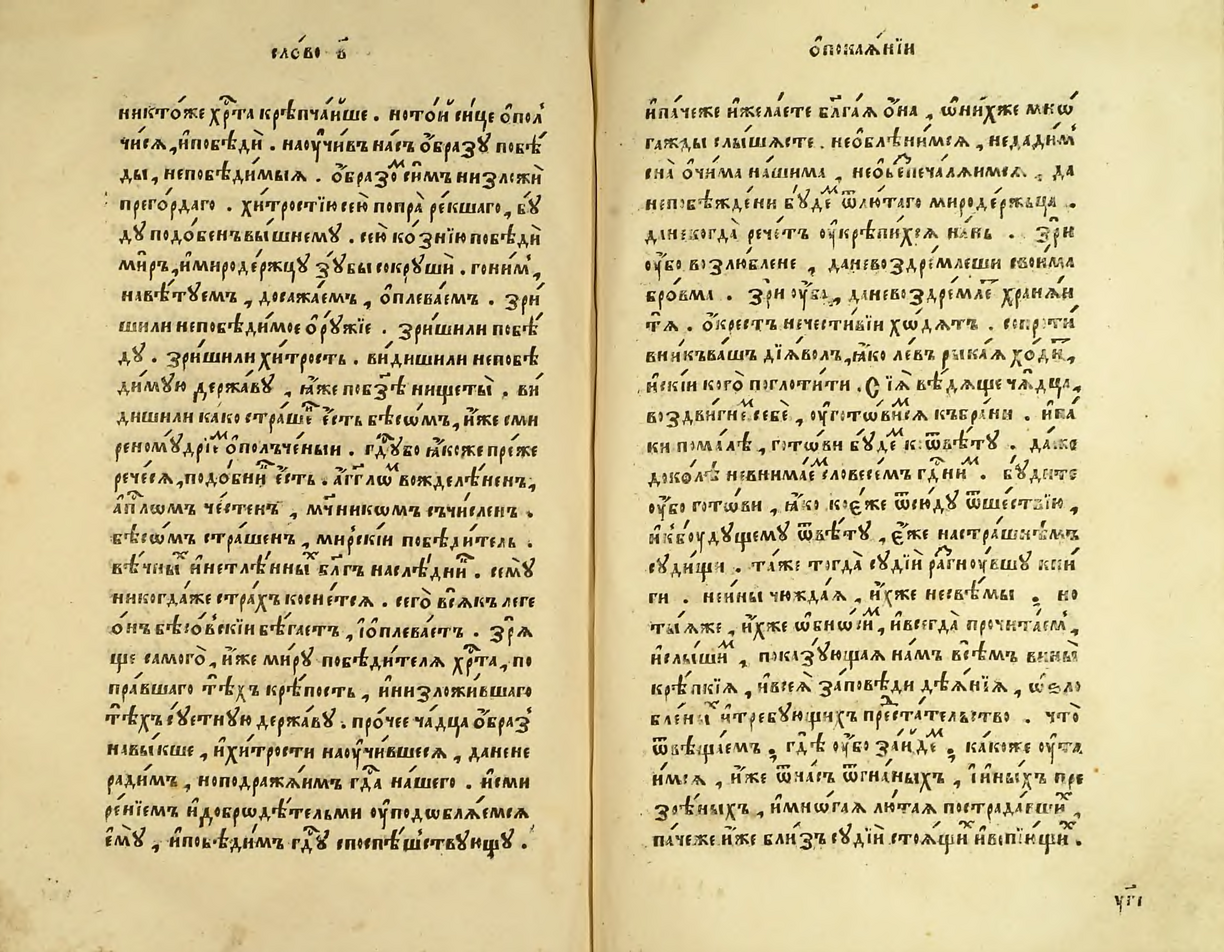 сло́во в҃
никто́же хр҇та крѣпча́йше . нотои́ си́це ѻ҆пол
чи́ся , и҆побѣди̂ . наꙋчи́въ на́съ ѻ҆́бразꙋ побѣ́
ды , непобѣди́мыѧ . ѻ҆́бразоⷨ си́мъ низложѝ
прего́рдаго . хи́тростїю се́ю попра̀ ре́кшаго , бꙋ́
дꙋ подо́бенъ вы́шнемꙋ . се́ю ко́знїю побѣдѝ
ми́ръ , и҆миродержцꙋ зꙋ́бы сокрꙋшѝ . гони́м ,
навѣ́тꙋемъ , досажа́емъ , ѻ҆плева́емъ . зри́
шили непобѣди́мое ѻ҆рꙋ́жїе . зри́шили побѣ́
дꙋ . зри́шили хи́трость . ви́дишили непобѣ
ди́мꙋю держа́вꙋ , ꙗ҆́же побз҃ѣ нищеты̀ . ви́
дишили ка́ко стра́шеⷩ є҆́сть бѣсѡ́мъ , и҆́же сми
реномꙋ́дрїеⷨ ѻ҆полъче́ныи . гдⷭ҇ꙋбо ꙗ҆́коже пре́же
рече́сѧ , подо́бниⷦ є҆́сть . а҆́гг҃лѡⷨ вожделѣ́ненъ ,
а҆пⷭ҇лѡмъ че́стенъ , мч҃никѡмъ съчи́сленъ .
бѣсѡ́мъ стра́шенъ , ми́рскїи побѣди́тель .
вѣ́чныⷯ и҆нетлѣ́нныⷯ бл҃гъ наслѣ́дниⷦ . семꙋ̀
никогда́же стра́хъ косне́тсѧ . сего̀ всѧ́къ леге
ѻ҆́нъ бѣсо́вскїи бѣ́гаетъ , і҆ѻплева́етъ . зрѧ́
ще самого̀ , и҆́же ми́рꙋ побѣди́телѧ хр҇та̀ , по
пра́вшаго тѣ́хъ крѣ́пость , и҆низложи́вшаго
тѣ́хъ сꙋ́етнꙋю держа́вꙋ . про́чее ча́дца ѻ҆́браз
навы́кше , и҆хи́трости наꙋчи́вшесѧ , дане́не
ради́мъ , ноподража́имъ гдⷭ҇а на́шего . и҆сми
ре́нїемъ и҆добрѡдѣ́тельми ᲂу҆подѡблѧ́емсѧ
є҆мꙋ̀ , и҆побѣди́мъ гдⷭ҇ꙋ споспѣ́шствꙋющꙋ .
ѻ҆покаѧ́нїи
и҆па́чеже и҆жела́ете бл҃га́ѧ ѻ҆́на , ѡ҆ни́хже мнѡ́
гажды слы́шѧсте . необлѣни́мсѧ , недади́м
сна̀ ѻ҆чи́ма на́шима , необъепечалѧ́имсѧ , да
непобѣжде́ни бꙋ́деⷨ ѿлю́таго миродержьца .
данекогда̀ рече́тъ ᲂу҆крѣпи́хсѧ на́нь . зрѝ
ᲂу҆̀бо возлю́блене , даневоздре́млеши свои́ма
бровма . зрѝ ᲂу҆̀бѡ , даневоздре́млеⷮ хранѧ́и
тѧ̀ . ѻ҆́крестъ нечести́вїи хѡ́дѧтъ . сопроти́
вникъ ва́шъ дїѧ́волъ , ꙗ҆́ко ле́въ рыка́ѧ хо́диⷮ ,
и҆скі́и кого̀ поглоти́ти . Сїѧ̀ вѣ́дѧще чѧ́дца ,
воздви́гнеⷨ себѐ , ᲂу҆гото́вимсѧ къбра́ни . и҆па́
ки пома́лѣ , гото́ви бꙋ́деⷨ кѿвѣ́тꙋ . даже
доко́лѣ невнима́еⷨ словесе́мъ гдⷭ҇ниⷨ . бꙋ́дите
ᲂу҆̀бо гото́ви , ꙗ҆́ко коє҆́же ѿсю́дꙋ ѿше́ствїю ,
и҆къбꙋ́дꙋщемꙋ ѿвѣ́тꙋ , є҆́же настра́шнѣмъ
сꙋди́щи . та́же тогда̀ сꙋдїи̂ разгнꙋ́вшꙋ кни́
ги . неи́ны чюжда́ѧ , и҆́хже несвѣ́мы , но
ты́ѧже , и҆́хже ѡ҆бы́ѡⷨ , и҆всегда̀ прочита́ем ,
и҆слы́шиⷨ , показꙋ́ющаѧ на́мъ всѣ́мъ вины̀
крѣ́пкїѧ , и҆всеѧ̀ за́повѣди дѣѧ́нїѧ , ѡ҆ѕло
бле́ныⷯ и҆тре́бꙋющихъ преⷣста́тельство . что̀
ѿвѣща́емъ , гдѣ̀ ᲂу҆̀бо за́идеⷨ , ка́коже ᲂу҆таи́
имсѧ , и҆́же ѿна́съ ѿгна́ныхъ , і҆и́ныхъ пре
зрѣ́ныхъ , и҆мнѡ́гаѧ лю́таѧ пострада́вшиⷯ ,
па́чеже и҆́же бли́зъ сꙋдїи̂ стоѧ́щиⷯ и҆впїю́щиⷯ .